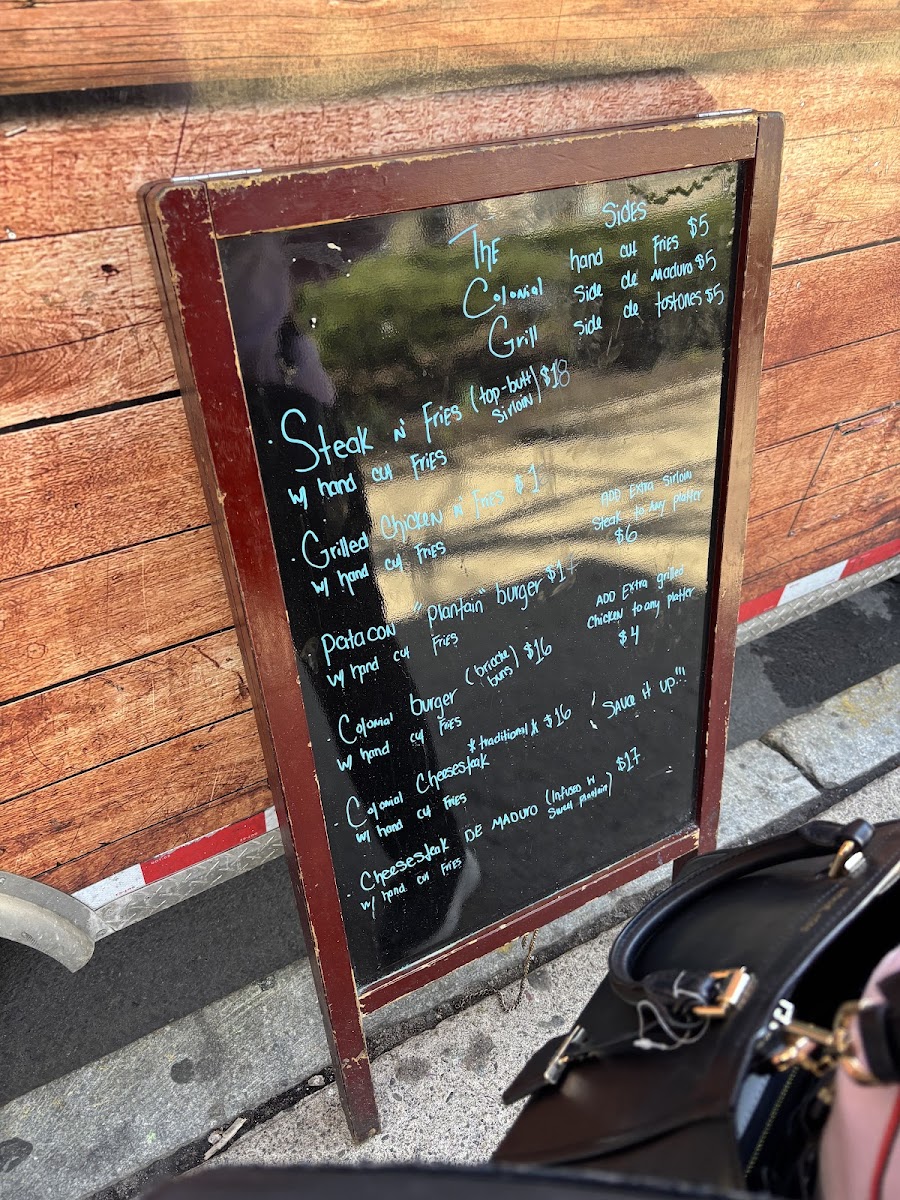 The
Colonial
Grill
Sides
hand cut Fries $5
Side de Maduro $5
side de tostones $5
· Steak N' Fries (top-butt sirloin) $18
w/ hand cut Fries
· Grilled Chicken N' Fries
w/ hand cut Fries
ADD Extra sirloin
Steak to any platter
$6
Patacon "Plantain" burger
w/ hand cut Fries
ADD Extra grilled
Chicken to any platter
$4
· Colonial burger (brioche buns) $16
w/ hand cut Fries
· Colonial Cheesesteak *traditional* $16
w/ hand cut Fries
! Sauce it up!!!
· Cheesesteak DE MADURO (Infused w Sweet Plantain) $17
w/ hand cut Fries